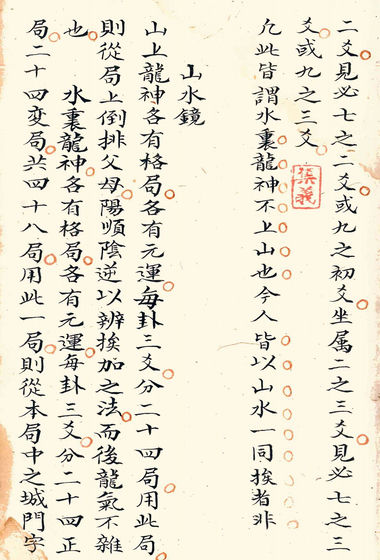 二爻見必七之二爻或九之初爻坐属二之三爻見必七之三
爻或九之三爻
凢此皆謂水裏龍神不上山也今人皆以山水一同挨者非
山水鏡
山上龍神各有格局各有元運每卦三爻分二十四局用此局
則從局上倒排父母陽順陰逆以辨挨加之法而後龍氣不雜
也　水裏龍神各有格局各有元運每卦三爻分二十四正
局二十四变局共四十八局用此一局則從本局中之城門字